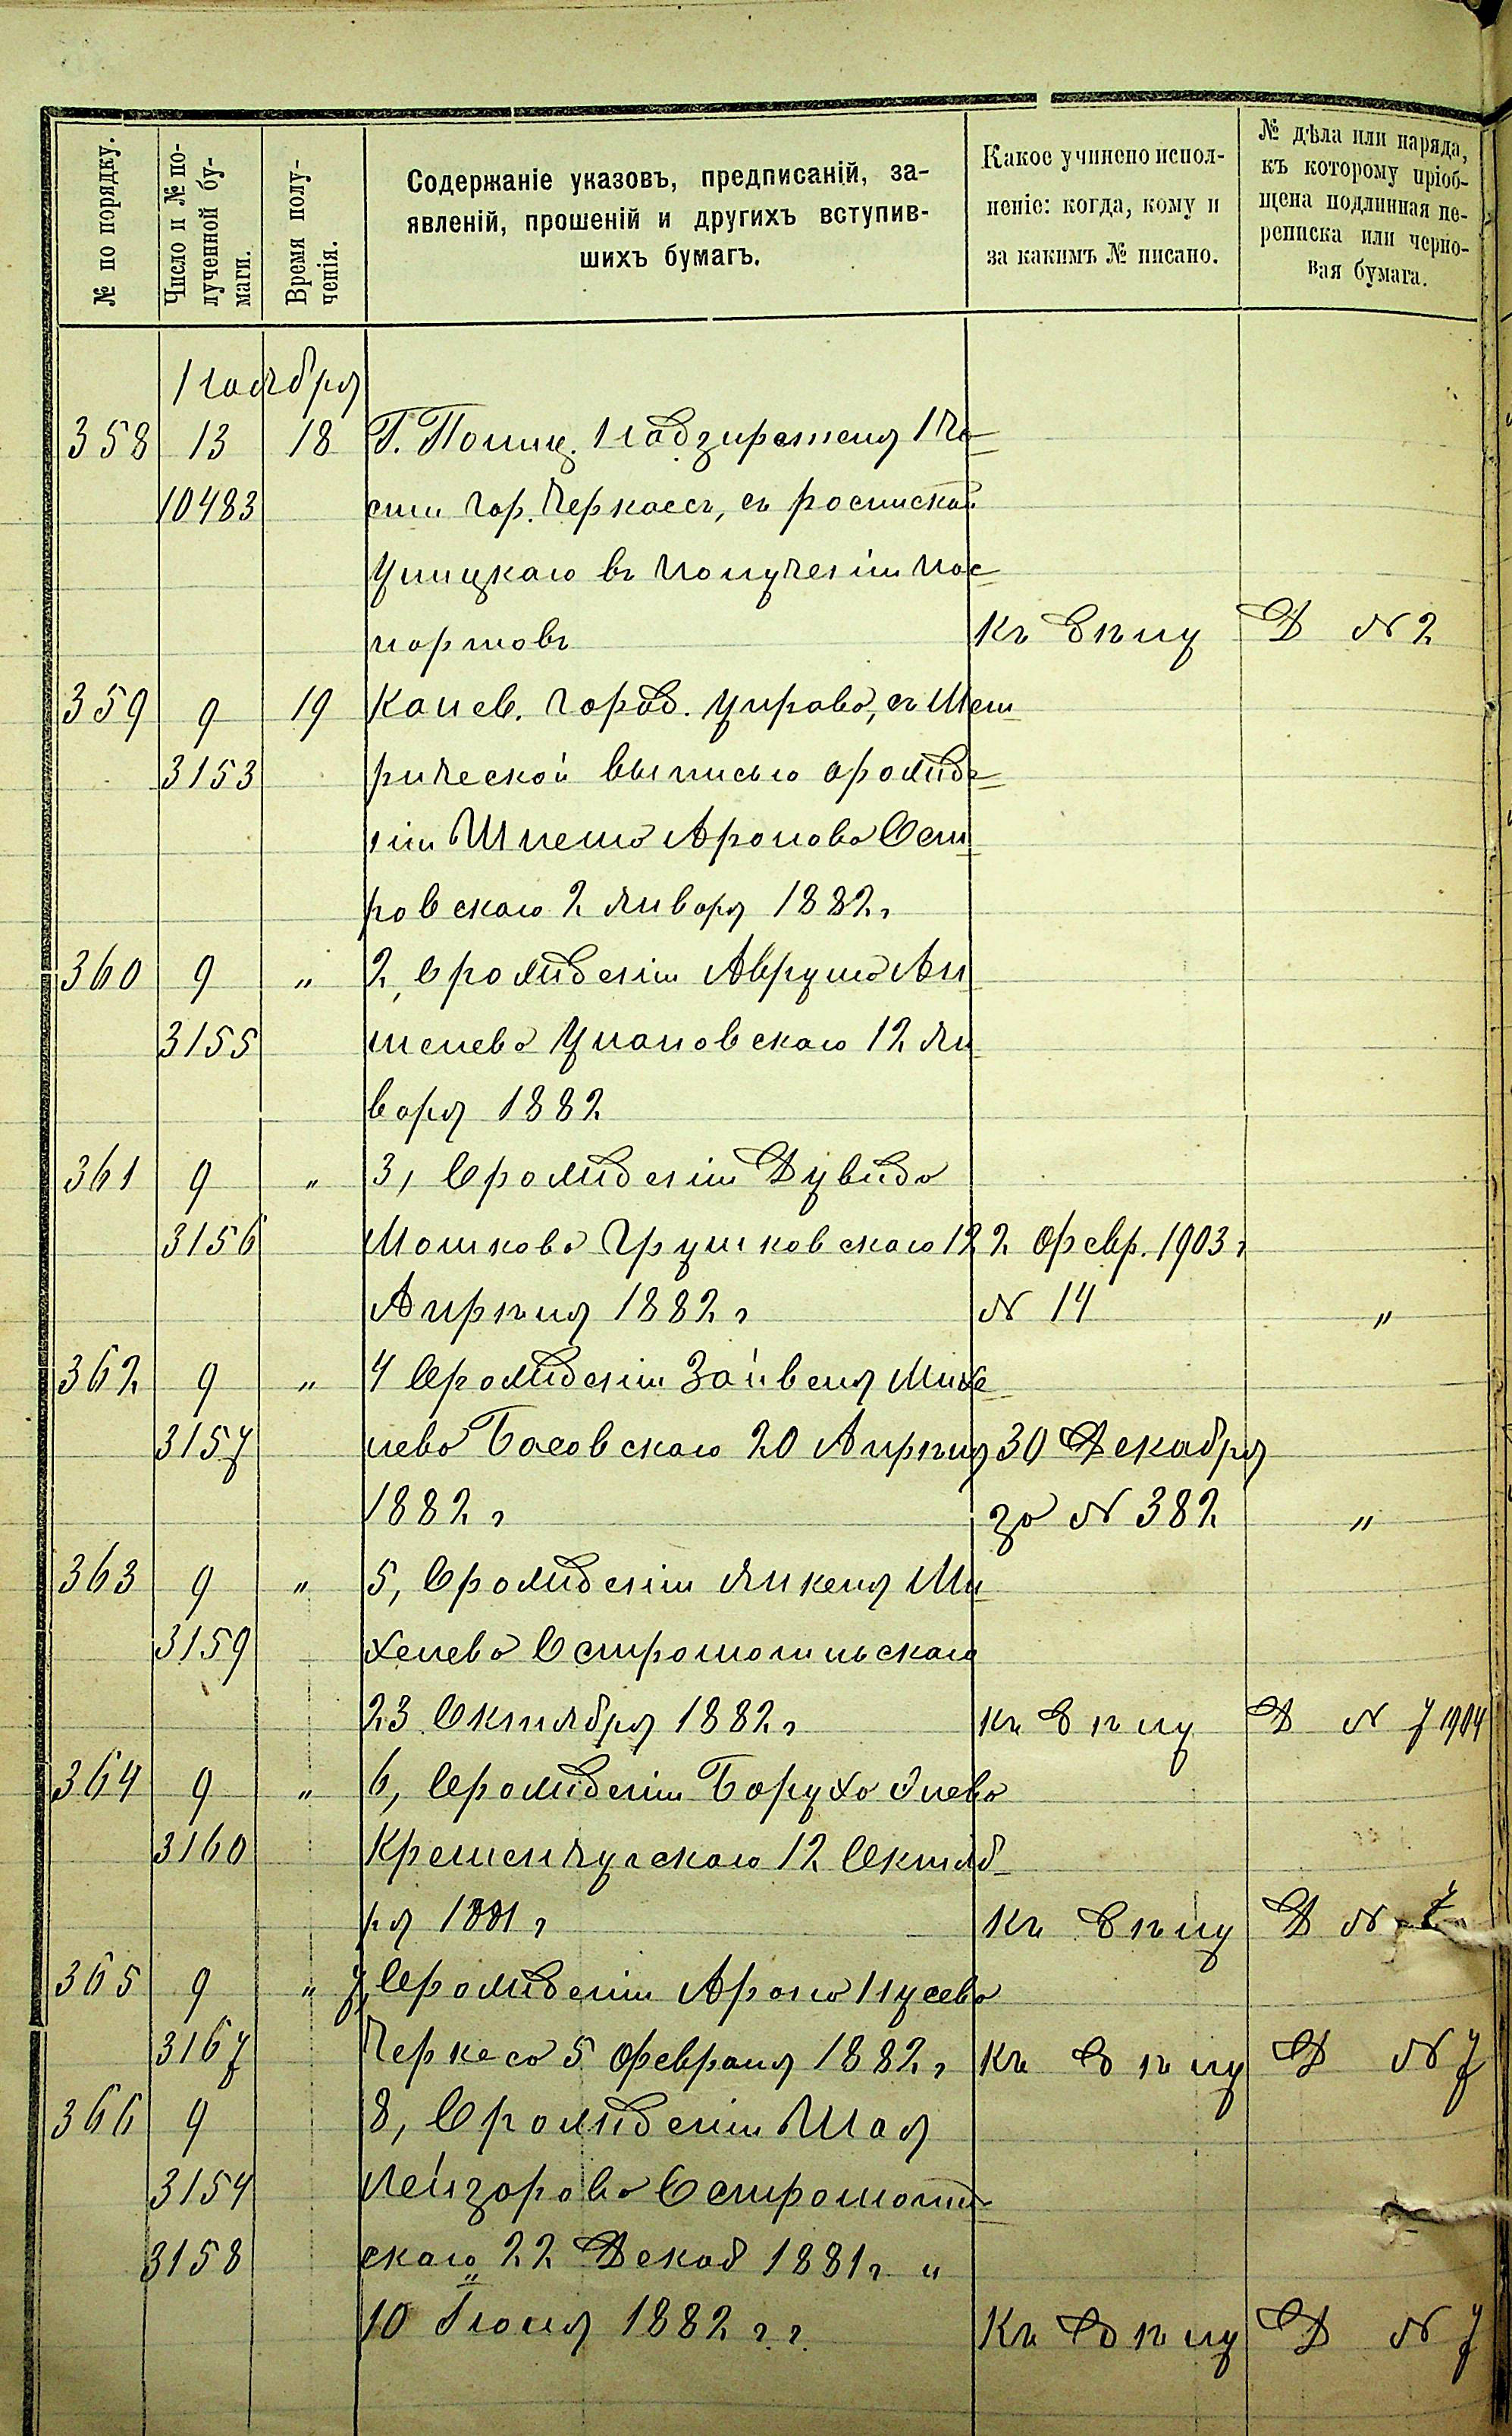 № по порядку.
Число и № по-
лученной бу-
маги.
Время полу-
ченія.
Содержаніе указовъ, предписаній, за-
явленій, прошеній и другихъ вступив-
шихъ бумагъ.
Какое учинено испол-
неніе: когда, кому и
за какимъ № писано.
№ дѣла или наряда,
къ которому пріоб-
щена подлинная пе-
реписка или черно-
вая бумага.
Ноября
358 13 18 Г. Полиц. Надзирателя 1 Ча-
10483 сти гор. Черкассъ, съ роспиской
Улицкаго въ полученіи пас-
портовъ Къ дѣлу Д № 2
359 9 19 Канев. Город. Управа, съ Мет
3153 рической выписью о рожде-
ніи Шлемы Аронова Ост
ровскаго 2 Января 1882 г
360 9 " 2, О рожденіи Аврума Ан
3155 шелева Улановскаго 12 Ян
варя 1882
361 9 " 3, О рожденіи Дувида
3156 Мошкова Грушковскаго 12 2 Февр. 1903 г
Апрѣля 1882 г № 14 "
362 9 " 4 О рожденіи Зайвеля Михе
3157 лева Басовскаго 20 Апрѣля 30 Декабря
1882 г за № 382 "
363 9 " 5, О рожденіи Янкеля Ми
3159 хелева Остромогильскаго
23 Октября 1882 г Къ дѣлу Д № 7 1904
364 9 " 6, О рожденіи Боруха Элева
3160 Кременчугскаго 12 Октяб-
ря 1881 г Къ дѣлу Д № 7
365 9 " 7, О рожденіи Арона Нусева
3167 Черкеса 5 Февраля 1882 г Къ дѣлу Д № 7
366 9 8, О рожденіи Шая
3154 Лейзорова Остромогил-
3158 скаго 22 Декаб 1881 г и
10 Іюля 1882 г г. Къ дѣлу Д № 7